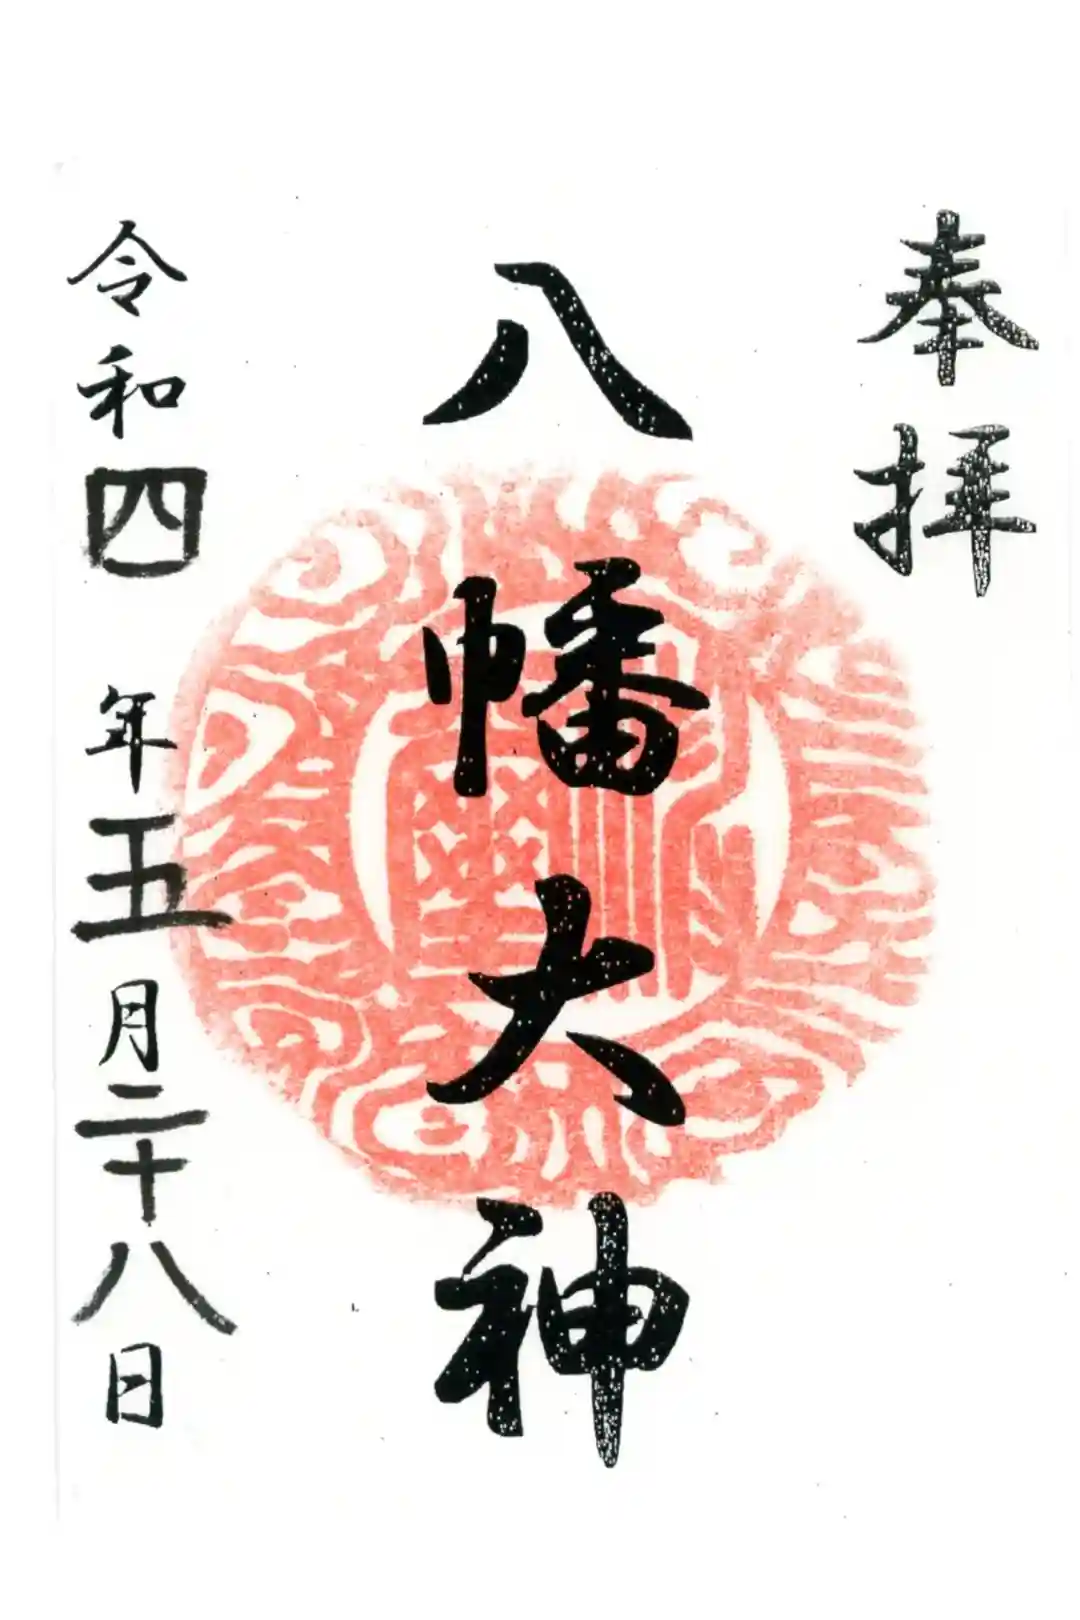 奉拝
八幡大神
令和四年五月二十八日